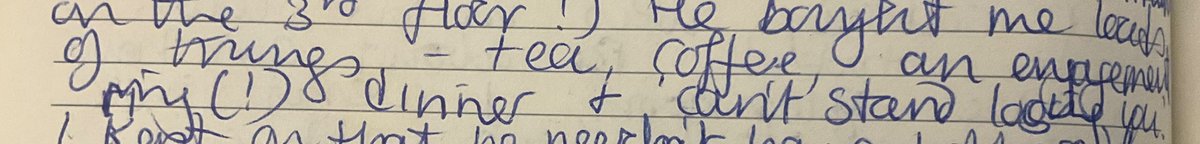 on the 3rd floor!) He bought me loads
of things - tea, coffee, an engagement
ring (!) & dinner + 'can't stand losing you'.
I kept on that he needn't